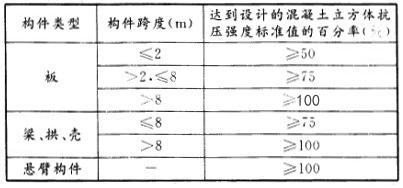 构件类型 构件跨度(m) 达到设计的混凝土立方体抗
压强度标准值的百分率(%)
板 ≤2 ≥50
>2,≤8 ≥75
>8 ≥100
梁、拱、壳 ≤8 ≥75
>8 ≥100
悬臂构件 — ≥100